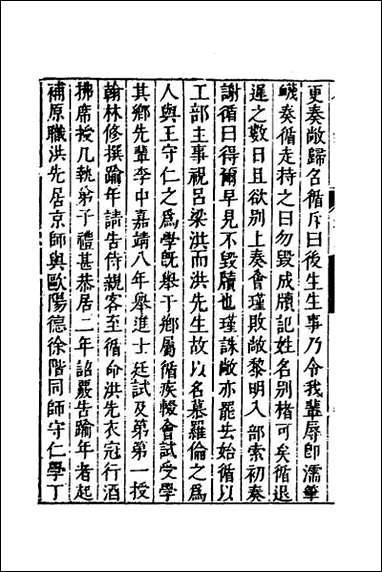 更奏敞歸名循斥曰後生生事乃令我輩辱即濡筆
竄奏循走持之曰勿毀成牘記姓名別楮可矣循退
遲之數日且欲別上奏會瑾敗敞黎明入部索初奏
謝循曰得爾早見不毀牘也瑾誅敞亦罷去始循以
工部主事視呂梁洪而洪先生故以名慕羅倫之為
人與王守仁之為學旣舉于鄉屬循疾輟會試受學
其鄉先輩李中嘉靖八年舉進士廷試及第第一授
翰林修撰踰年請告侍親客至循命洪先衣冠行酒
拂席授几執弟子禮甚恭居二年詔覈告踰年者起
補原職洪先居京師與歐陽德徐階同師守仁學丁